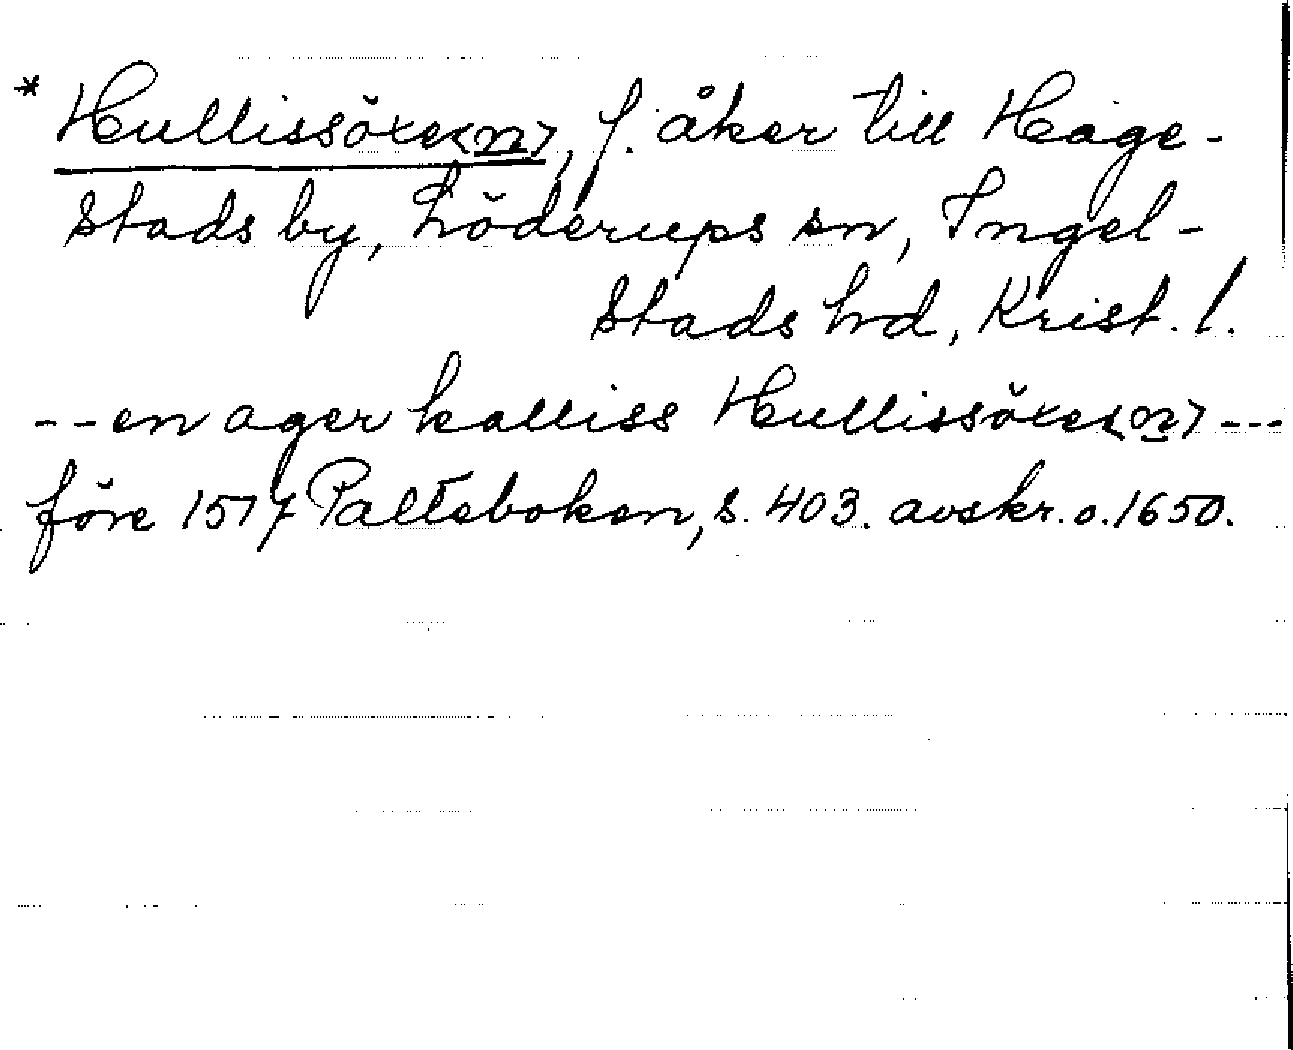 * Hullissöxe<n>, f. åker till Hage-
stads by, Löderups sn, Ingel-
stads hd, Krist. l.
--en ager kalliss Hullissöxe<n> ---
före 1577 Palteboken, s. 403. avskr. o. 1650.